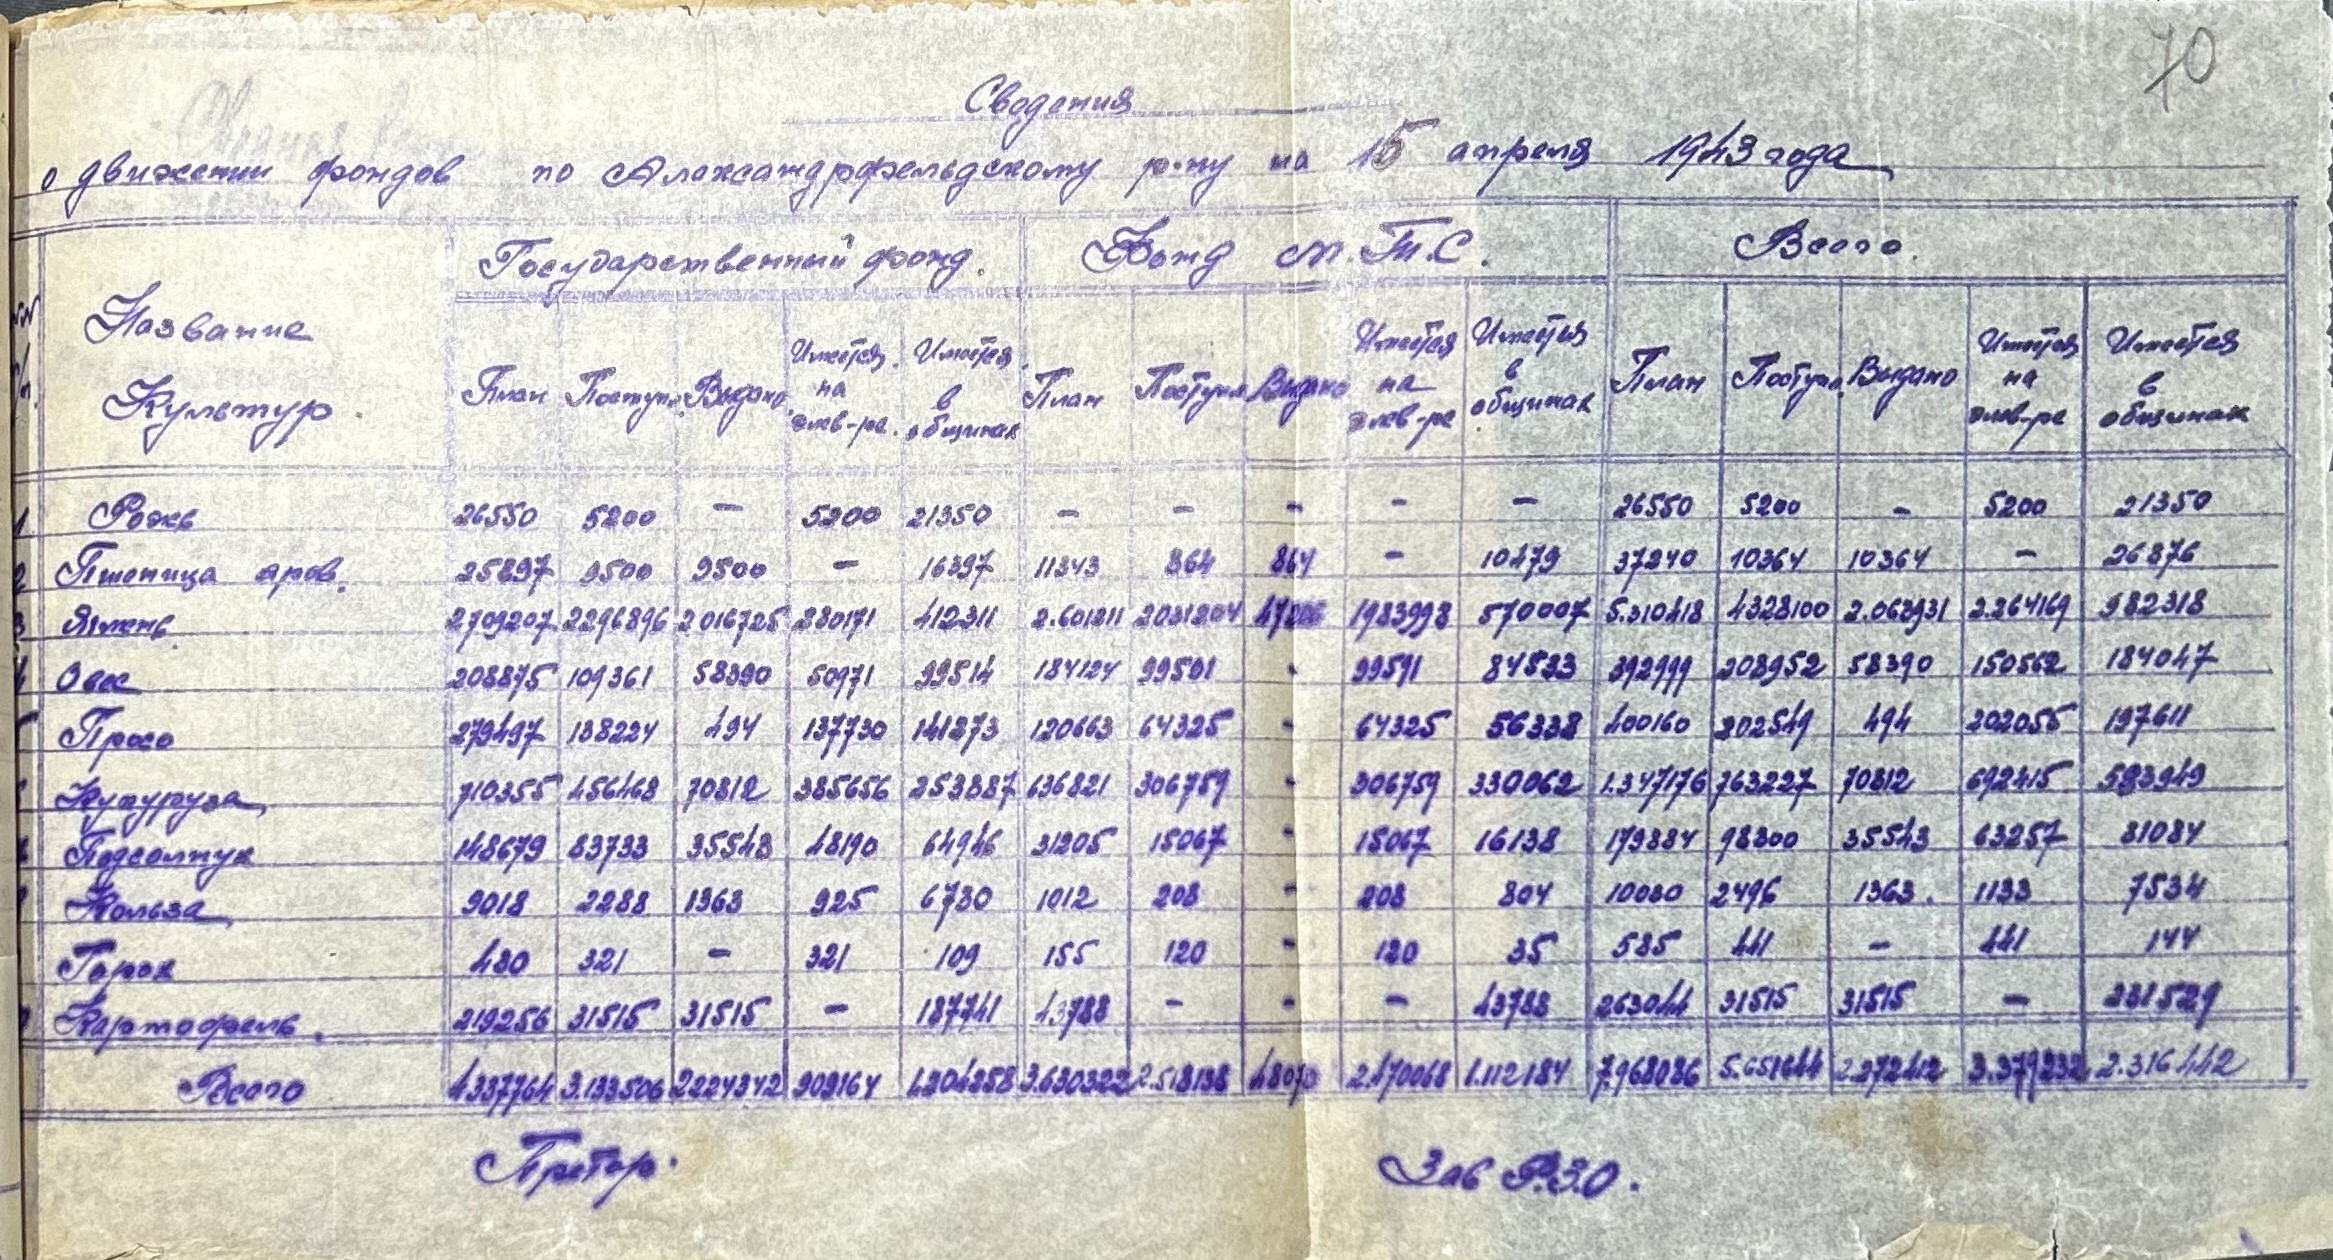 70
Сведения
о движении фондов по Александрфельдскому р-ну на 15 апреля 1943 года
№№ п/п. Название Культур. Государственный фонд. Фонд М.Т.С. Всего.
План Поступ. Выдано Имеется на элев-ре. Имеется в общинах План Поступ. Выдано Имеется на элев-ре Имеется в общинах План Поступ. Выдано Имеется на элев-ре Имеется в общинах
1 Рожь 26550 5200 — 5200 21350 — — — — — 26550 5200 — 5200 21350
2 Пшеница яров. 25897 9500 9500 — 16397 11343 864 864 — 10479 37240 10364 10364 — 26876
3 Ячмень 2709207 2296896 2016725 280171 412311 2.601211 2031204 47206 1983998 570007 5.310418 4328100 2.063931 2.264169 982318
4 Овес 208875 109361 58390 50971 99514 184124 99591 - 99591 84533 392999 208952 58390 150562 184047
5 Просо 279497 138224 494 137730 141273 120663 64325 - 64325 56338 400160 202549 494 202055 197611
Кукуруза 710355 456468 70812 385656 253887 636821 306759 - 306759 330062 1.347176 763227 70812 692415 583949
Подсолнух 148679 83733 35543 48190 64946 31205 15067 - 15067 16138 179884 98800 35543 63257 81084
Кользa 9018 2288 1363 925 6730 1012 208 - 208 804 10030 2496 1363. 1133 7534
Горох 430 321 — 321 109 155 120 - 120 35 585 441 — 441 144
Картофель. 219256 31515 31515 — 187741 43788 — - — 43788 263044 31515 31515 — 231529
Всего 4337764 3.133506 2224342 909164 1.204258 3.630322 2.518138 48070 2.470068 1.112184 7.968086 5.651644 2.272412 3.379232 2.316442
Претор.
Зав Р.З.О.